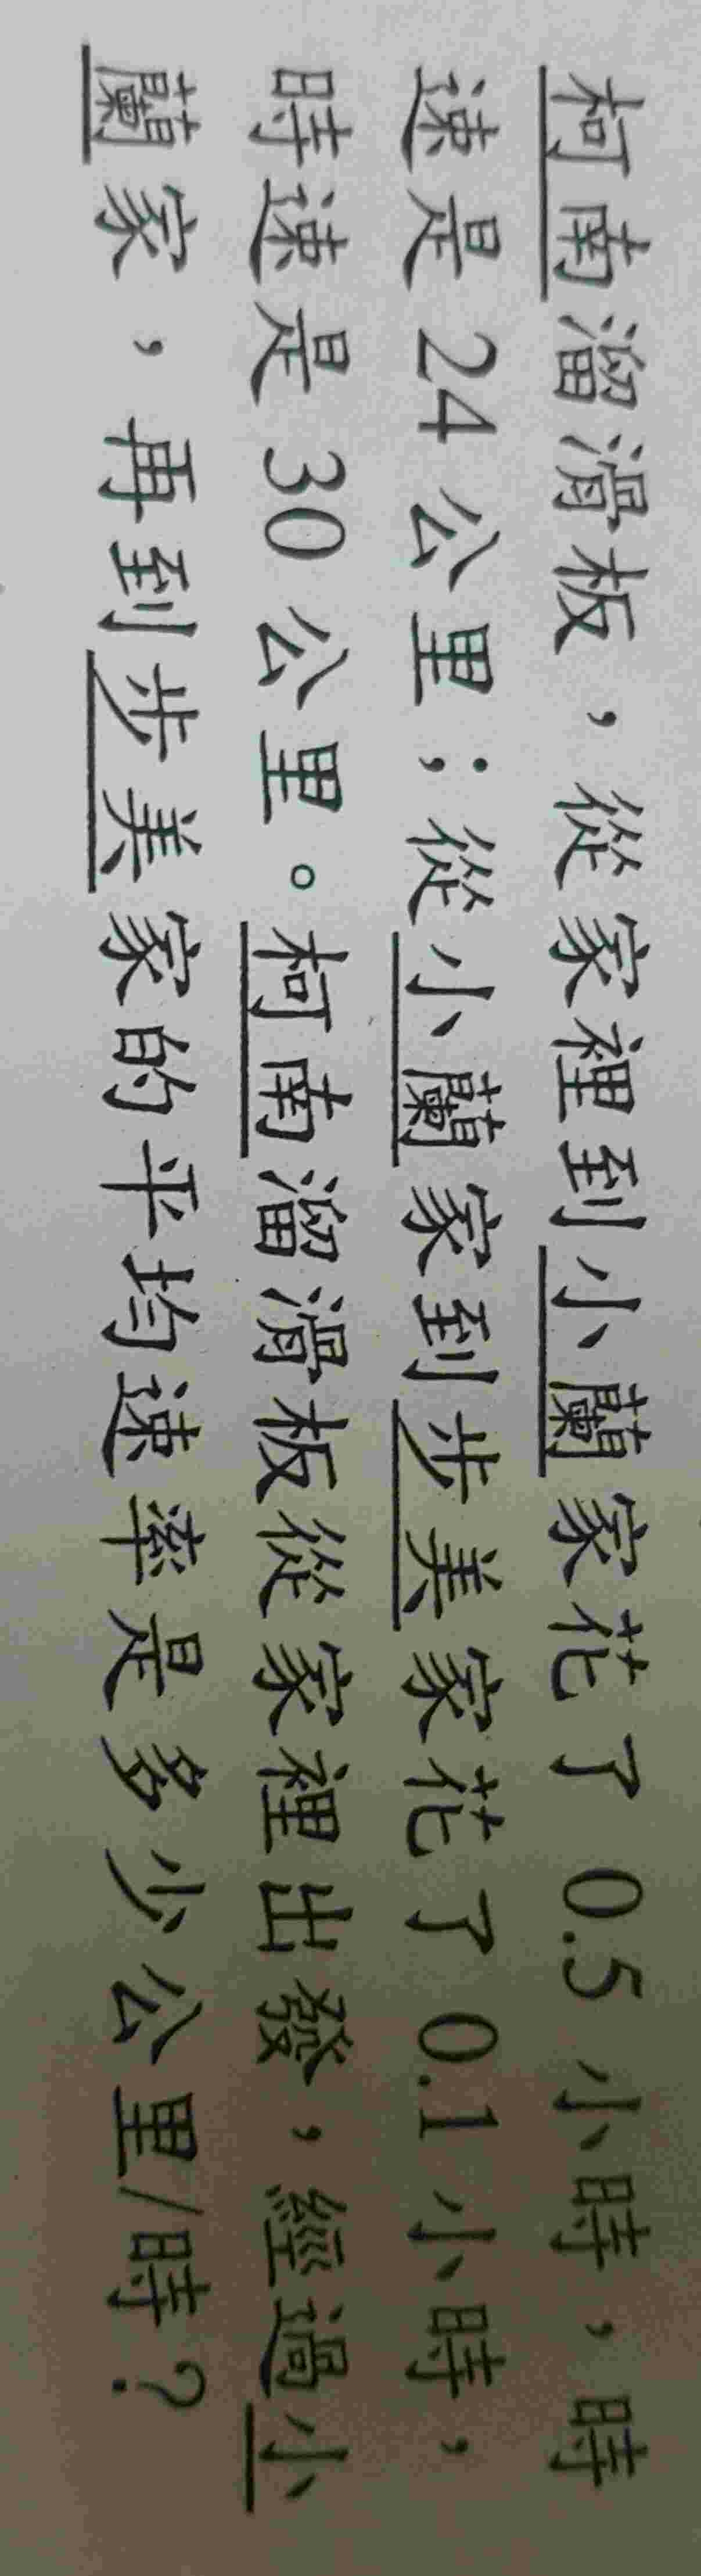 柯南溜滑板，從家裡到小蘭家花了 0.5 小時，時
速是 24 公里；從小蘭家到步美家花了 0.1 小時，
時速是 30 公里。柯南溜滑板從家裡出發，經過小
蘭家，再到步美家的平均速率是多少公里/時？